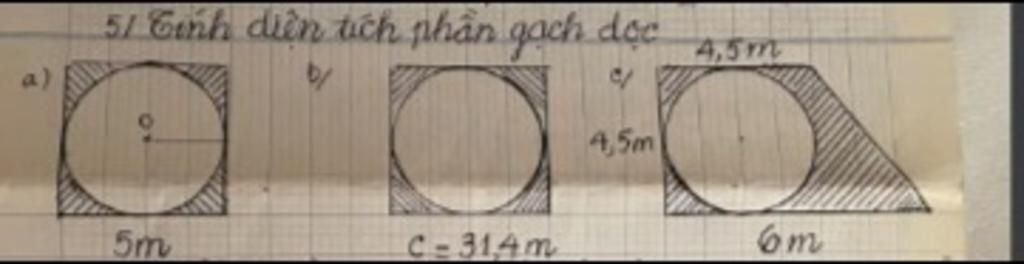 5/ Tính diện tích phần gạch dọc
a)
b/
c/
4,5m
O
4,5m
5m
C = 31,4m
6m